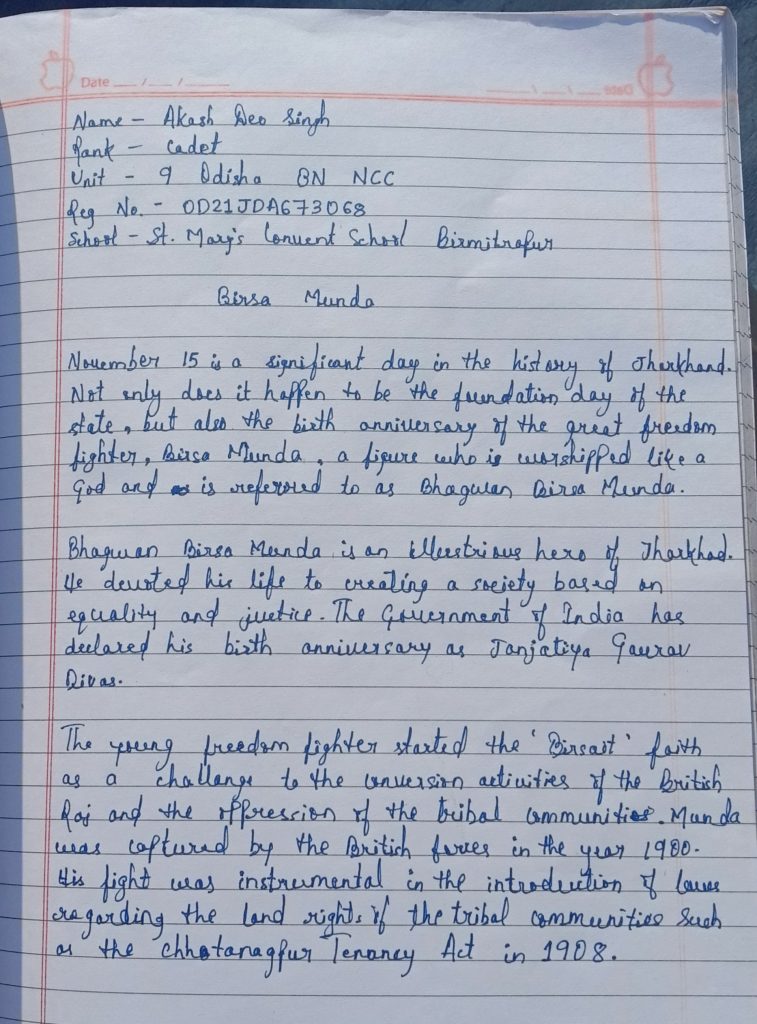 Date __/__/____
Name - Akash Deo Singh
Rank - Cadet
Unit - 9 Odisha BN NCC
Reg No. - OD21JDA673068
School - St. Mary's Convent School Birmitrapur
Birsa Munda
November 15 is a significant day in the history of Jharkhand.
Not only does it happen to be the foundation day of the
state, but also the birth anniversary of the great freedom
fighter, Birsa Munda, a figure who is worshipped like a
God and is referred to as Bhagwan Birsa Munda.
Bhagwan Birsa Munda is an illustrious hero of Jharkhad.
He devoted his life to creating a society based on
equality and justice. The Government of India has
declared his birth anniversary as Janjatiya Gaurav
Divas.
The young freedom fighter started the 'Birsait' faith
as a challange to the conversion activities of the British
Raj and the oppression of the tribal communities. Munda
was captured by the British forces in the year 1900.
His fight was instrumental in the introduction of laws
regarding the land rights of the tribal communities such
as the Chhotanagpur Tenancy Act in 1908.